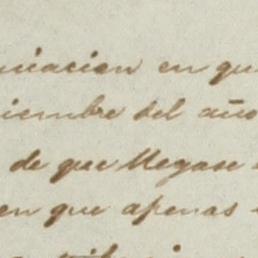 en que
iembre del año
de que llegase
en que apenas